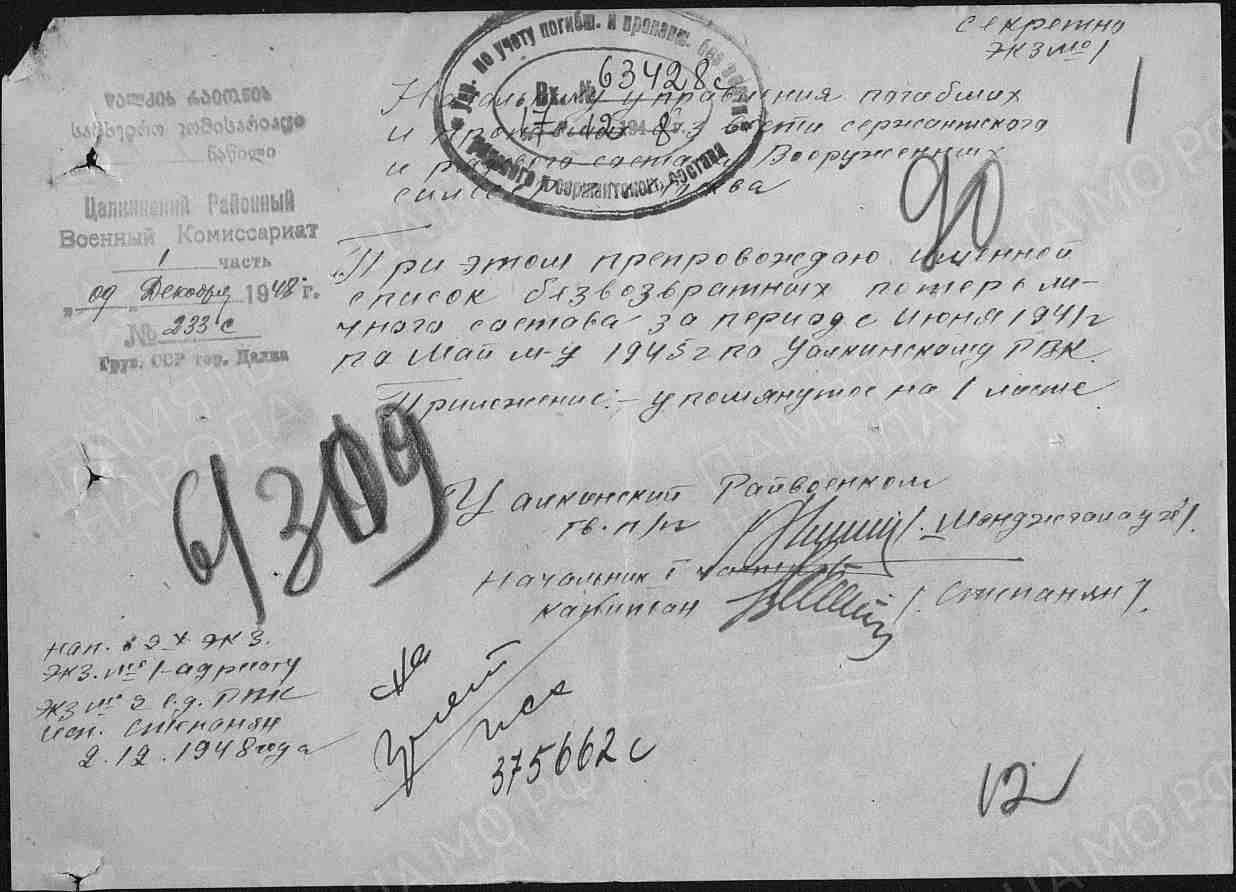 Секретно
Экз №1
1
Упр. по учету погибш. и пропавш. без вести
рядового и сержантского состава
Вх. № 63428с
17 12 1948 г.
Начальнику управления погибших
и пропавших без вести сержантского
и рядового состава Вооруженных
сил
წალკის რაიონის
სამხედრო კომისარიატი
ნაწილი
Цалкинский Районный
Военный Комиссариат
1 часть
„09 „ Декабря 1948 г.
№ 233 с
Груз. ССР гор. Цалка
90
При этом препровождаю именной
список безвозвратных потерь ли-
чного состава за период с Июня 1941 г
по Май м-ц 1945 г по Цалкинскому РВК.
Приложение:- упомянутое на 1 листе.
6/309
Цалкинский Райвоенком
гв. п/п-к
Начальник 1 части
капитан /Степанян/.
нап. в 2х экз.
экз. №1-адресату
экз №2 в д. РВК
исп. Степанян
2.12.1948 года
На
учет
375662 с
12
ПАМЯТЬ НАРОДА
ЦАМО РФ